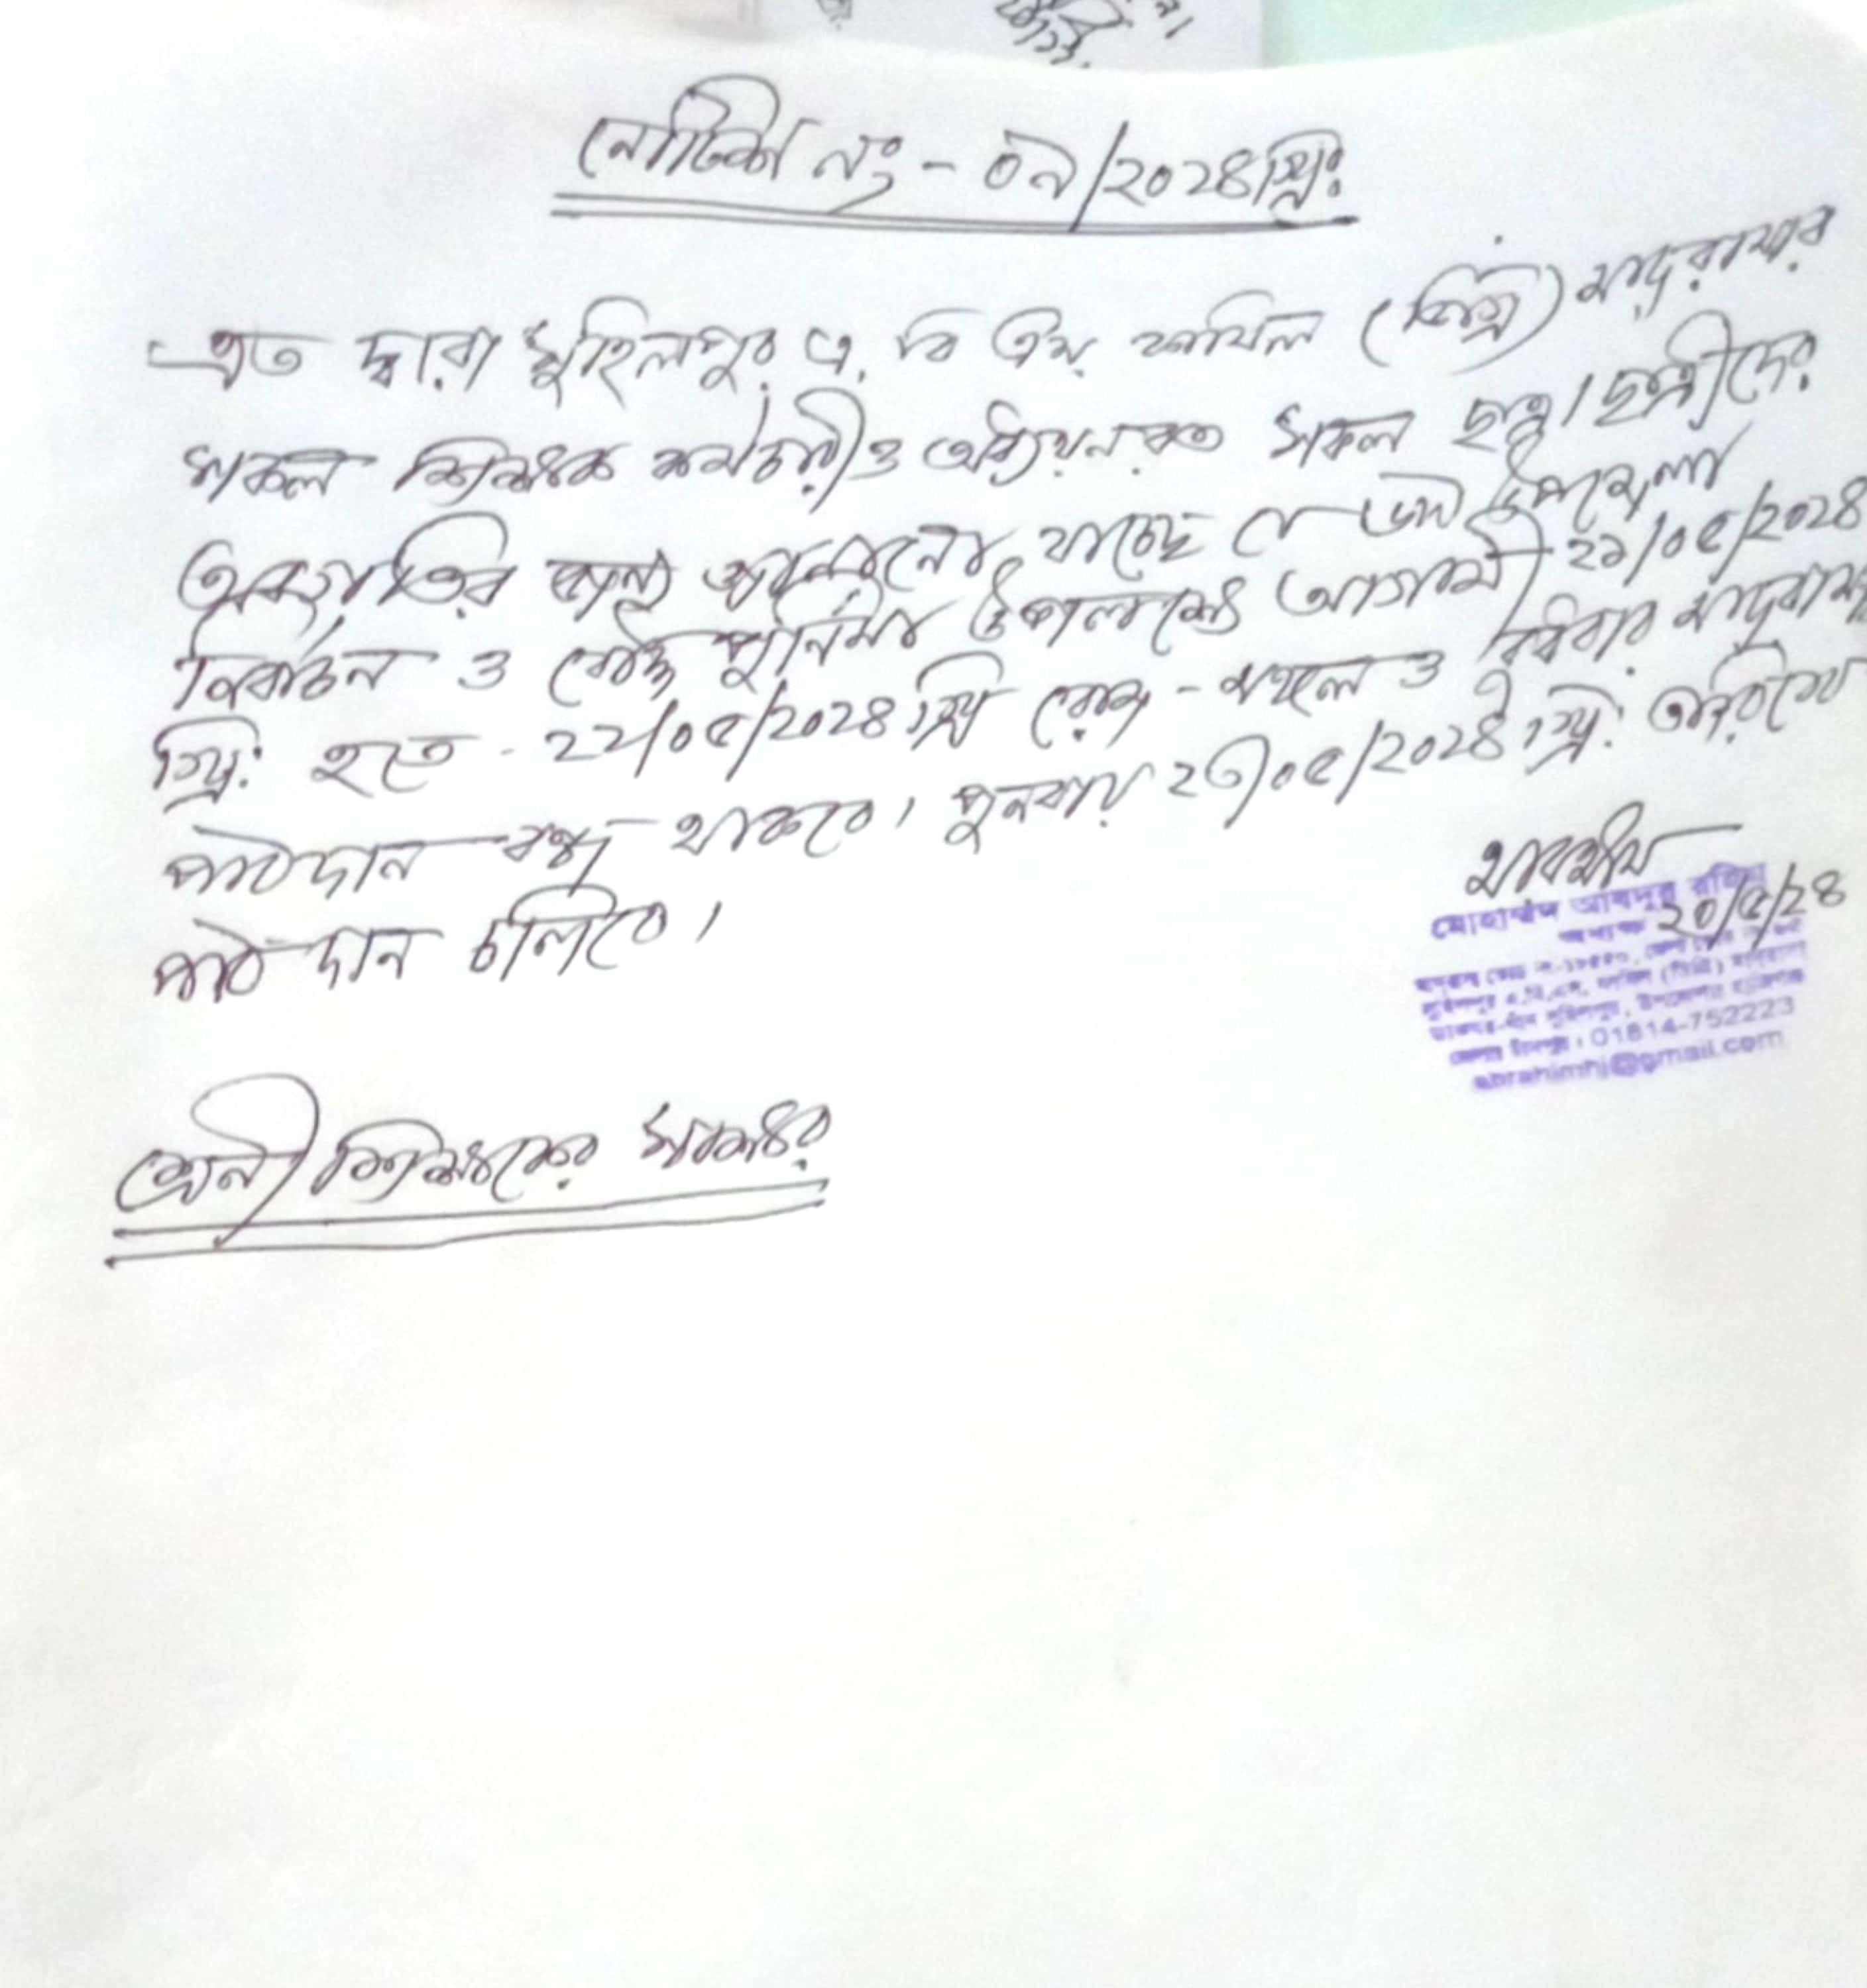 নোটিশ নং - ০৯/২০২৪ খ্রি:
এত দ্বারা সুহিলপুর এ, বি এম, ফাযিল (ডিগ্রি) মাদ্রাসার
সকল শিক্ষক কর্মচারী ও অধ্যয়নরত সকল ছাত্র/ছাত্রীদের
অবগতির জন্য জানানো যাচ্ছে যে উপজেলা
নির্বাচন ও বৌদ্ধ পূর্নিমা উপলক্ষে আগামী ২১/০৫/২০২৪
খ্রি: হতে - ২২/০৫/২০২৪ খ্রি রোজ - মঙ্গল ও বুধবার মাদ্রাসার
পাঠদান বন্ধ থাকবে। পুনরায় ২৩/০৫/২০২৪ খ্রি: তারিখে
পাঠ দান চলিবে।
২০/৫/২৪
মোহাম্মদ আবদুর রহিম
অধ্যক্ষ
সুহিলপুর এ,বি,এম, ফাযিল (ডিগ্রি) মাদ্রাসা
01814-752223
abrahimhj@gmail.com
শ্রেনী শিক্ষকের স্বাক্ষর